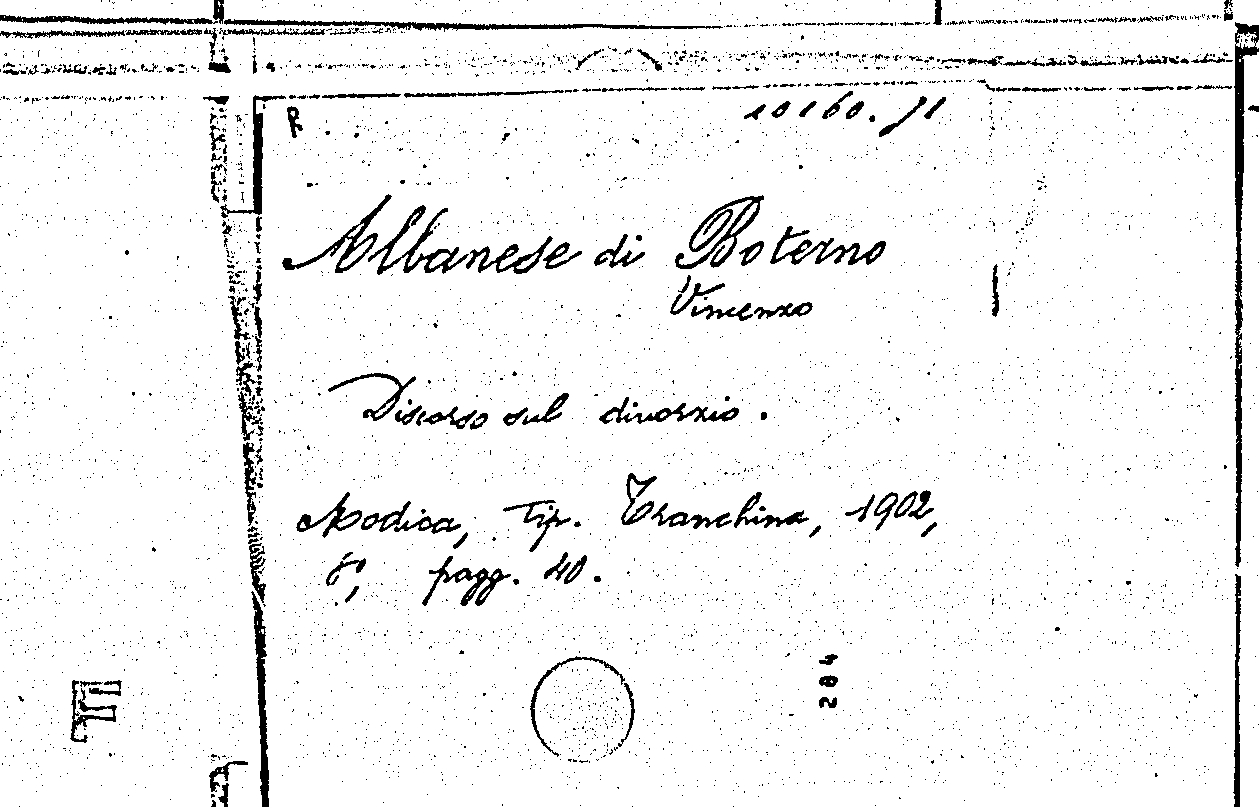 R
10160. J1
Albanese di Boterno
Vincenzo
Discorso sul divorzio.
Modica, Tip. Tranchina, 1902,
8°, pagg. 40.
204
F